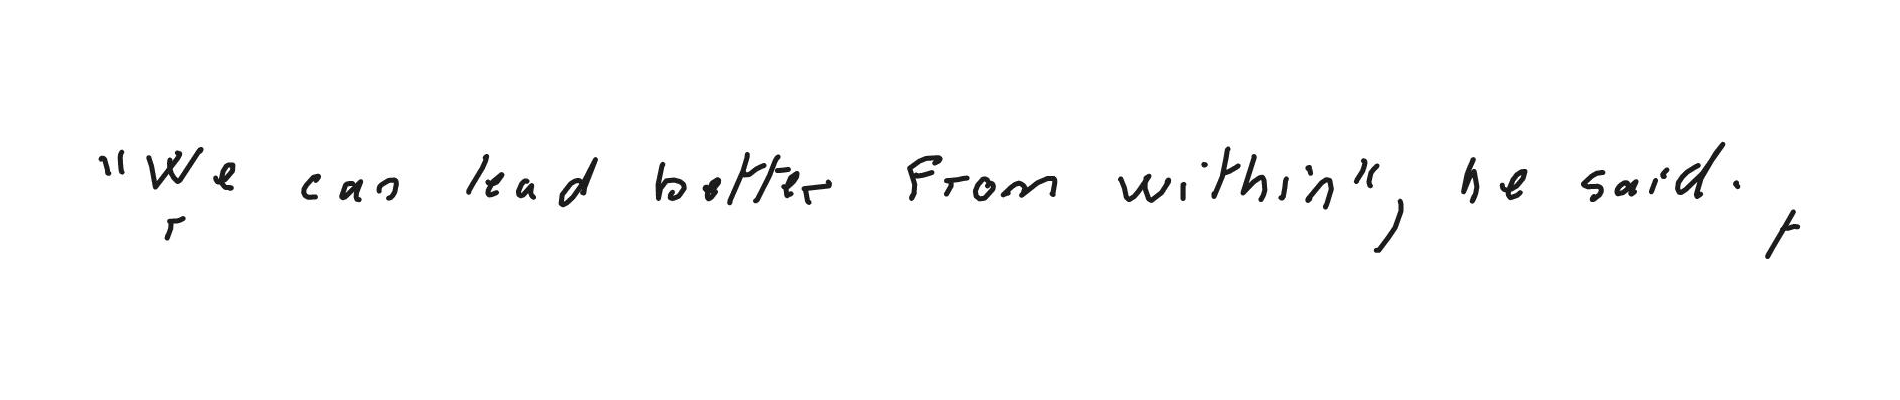 "We can lead better from within", he said.